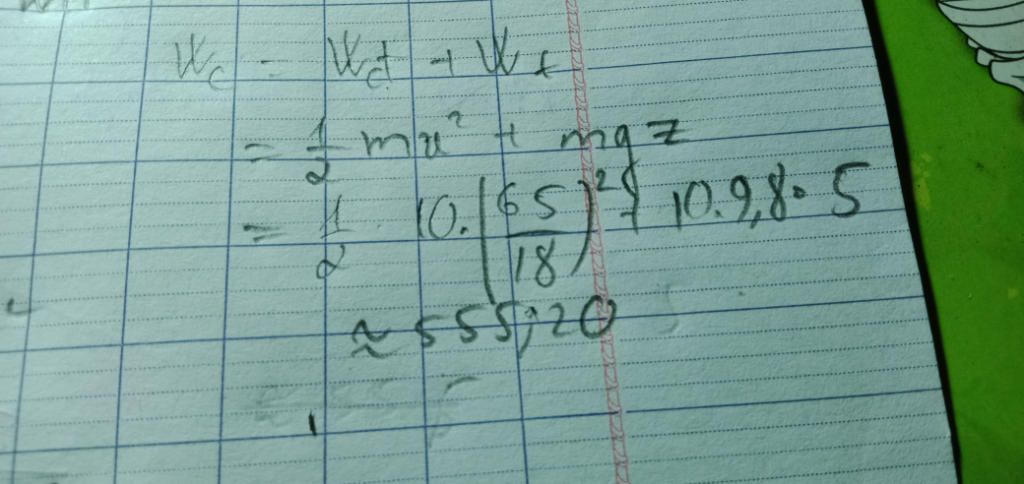 W_c = W_đ + W_t
= 1/2 mv² + mgz
= 1/2 . 10.(65/18)² + 10.9,8.5
≈ 555,20